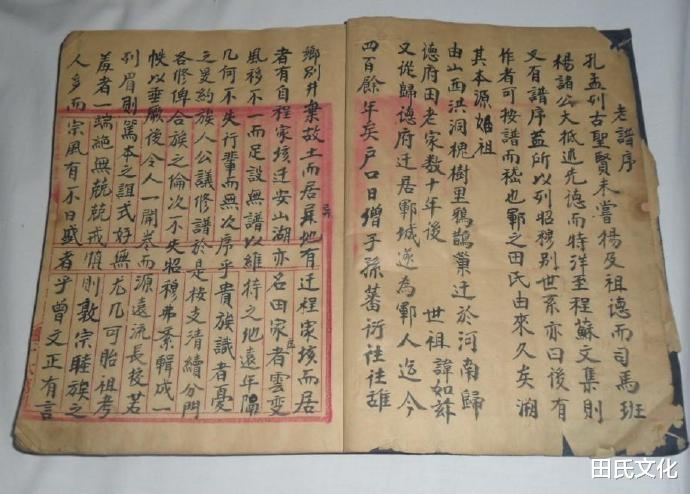 老譜序
孔孟列古聖賢未嘗楊及祖德而司馬班
楊諸公大抵追先德而特洋至程蘇文集則
又有譜序蓋所以列昭穆別世系亦曰後有
作者可按譜而嵇也鄆之田氏由來久矣溯
其本源始祖
由山西洪洞槐樹里鸛鵲巢迁於河南歸
德府田老家数十年後 世祖諱如玆
又從歸德府迁居鄆城遂為鄆人迄今
四百餘年矣户口日增子孫蕃衍往往離
鄉別井棄故土而居異地有迁程家垓而居
者有自程家垓迁安山湖亦名田家者雲变
風移不一而足設無譜以維持之地遠年隔
几何不失行輩而無次序乎貴族識者憂
之爰約族人公議修譜於是按支清續分門
各修俾合族之倫次不失昭穆弗紊輯成一
帙以垂厥後令人一開卷而源遠流長披若
列眉則篤本之誼式好無尤几可貽祖考
羞者一端絶無兢兢戒慎則敦宗睦族之
人多而宗風有不日盛者乎曾文正有言
田氏文化